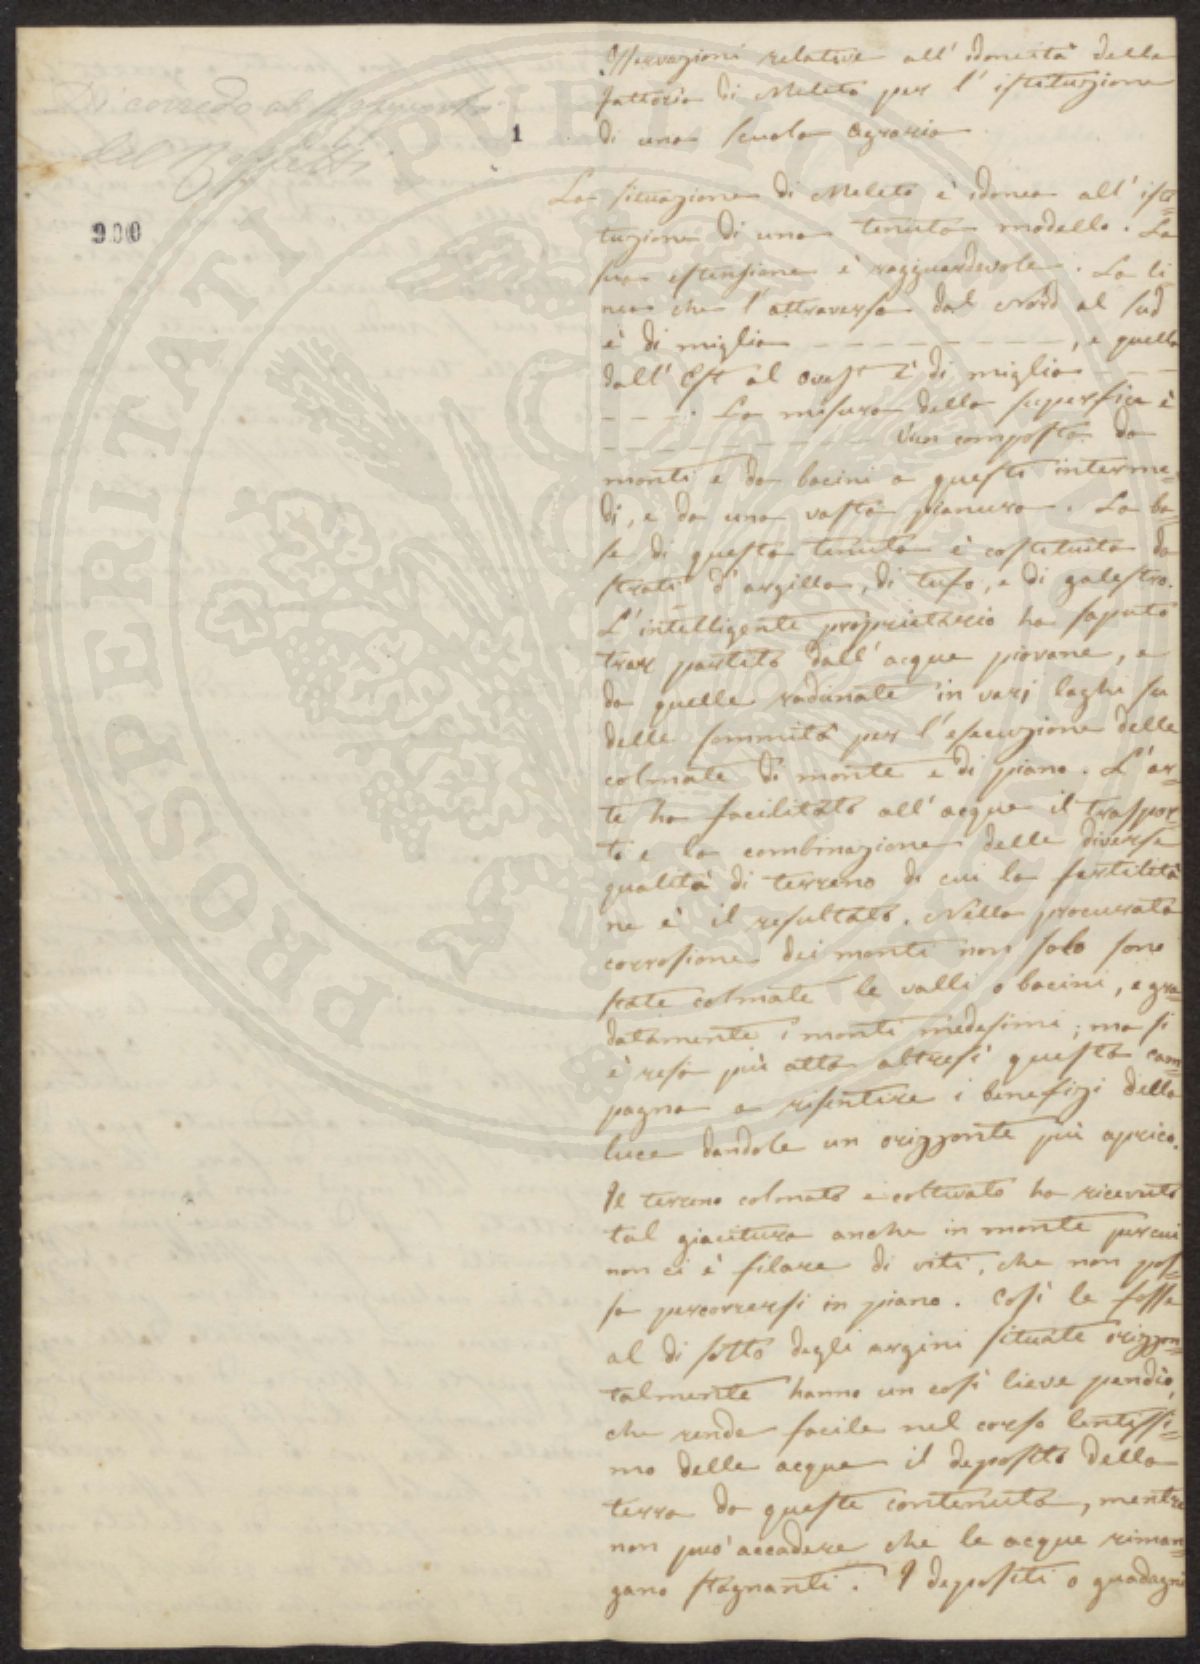 Di corredo al
del
1
900
Osservazioni relative all' idoneità della
fattoria di Meleto per l' istituzione
di una scuola agraria
La situazione di Meleto è idonea all' isti=
tuzione di una tenuta modello. La
sua estensione è ragguardevole. La li
nea che l' attraversa dal Nord al Sud
è di miglia _ _ _ _ _ _ _ _ _, e quella
dall' Est al Ovest è di miglia _ _ _
_ _ _ _. La misura della superficie è
_ _ _ _ _ _ _ _ _ _ Vien composta da
monti e da bacini a questi interme=
di, e da una vasta pianura. La ba=
se di questa tenuta è costituita da
strati d' argilla, di tufo, e di galestro.
L' intelligente proprietario ha saputo
trar partito dall' acque piovane, e
da quelle radunate in varj laghi su
delle sommità per l' esecuzione delle
colmate di monte e di piano. L' ar=
te ha facilitato all' acque il traspor=
to e la combinazione delle diverse
qualità di terreno di cui la fertilità
ne è il resultato. Nella procurata
corrosione dei monti non solo sono
state colmate le valli o bacini, e gra=
datamente i monti medesimi; ma si
è resa più atta altresì questa cam=
pagna a risentire i benefizi della
luce dandole un orizzonte più aprico.
Il terreno colmato e coltivato ha ricevuto
tal giacitura anche in monte percui
non ci è filare di viti, che non pos=
sa percorrersi in piano. Così le fosse
al di sotto degli argini situate orizzon=
talmente hanno un così lieve pendio,
che rende facile nel corso lentissi=
mo delle acque il deposito della
terra da queste contenuta, mentre
non può accadere che le acque riman=
gano stagnanti. I depositi o guadagni